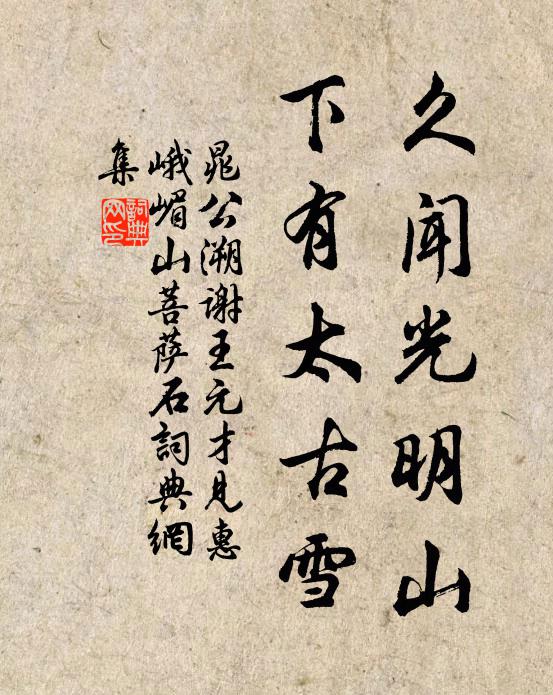 久闻光明山
下有太古雪
晁公溯谢王元才见惠
峨嵋山菩萨石詞典網
集
詞典
网印